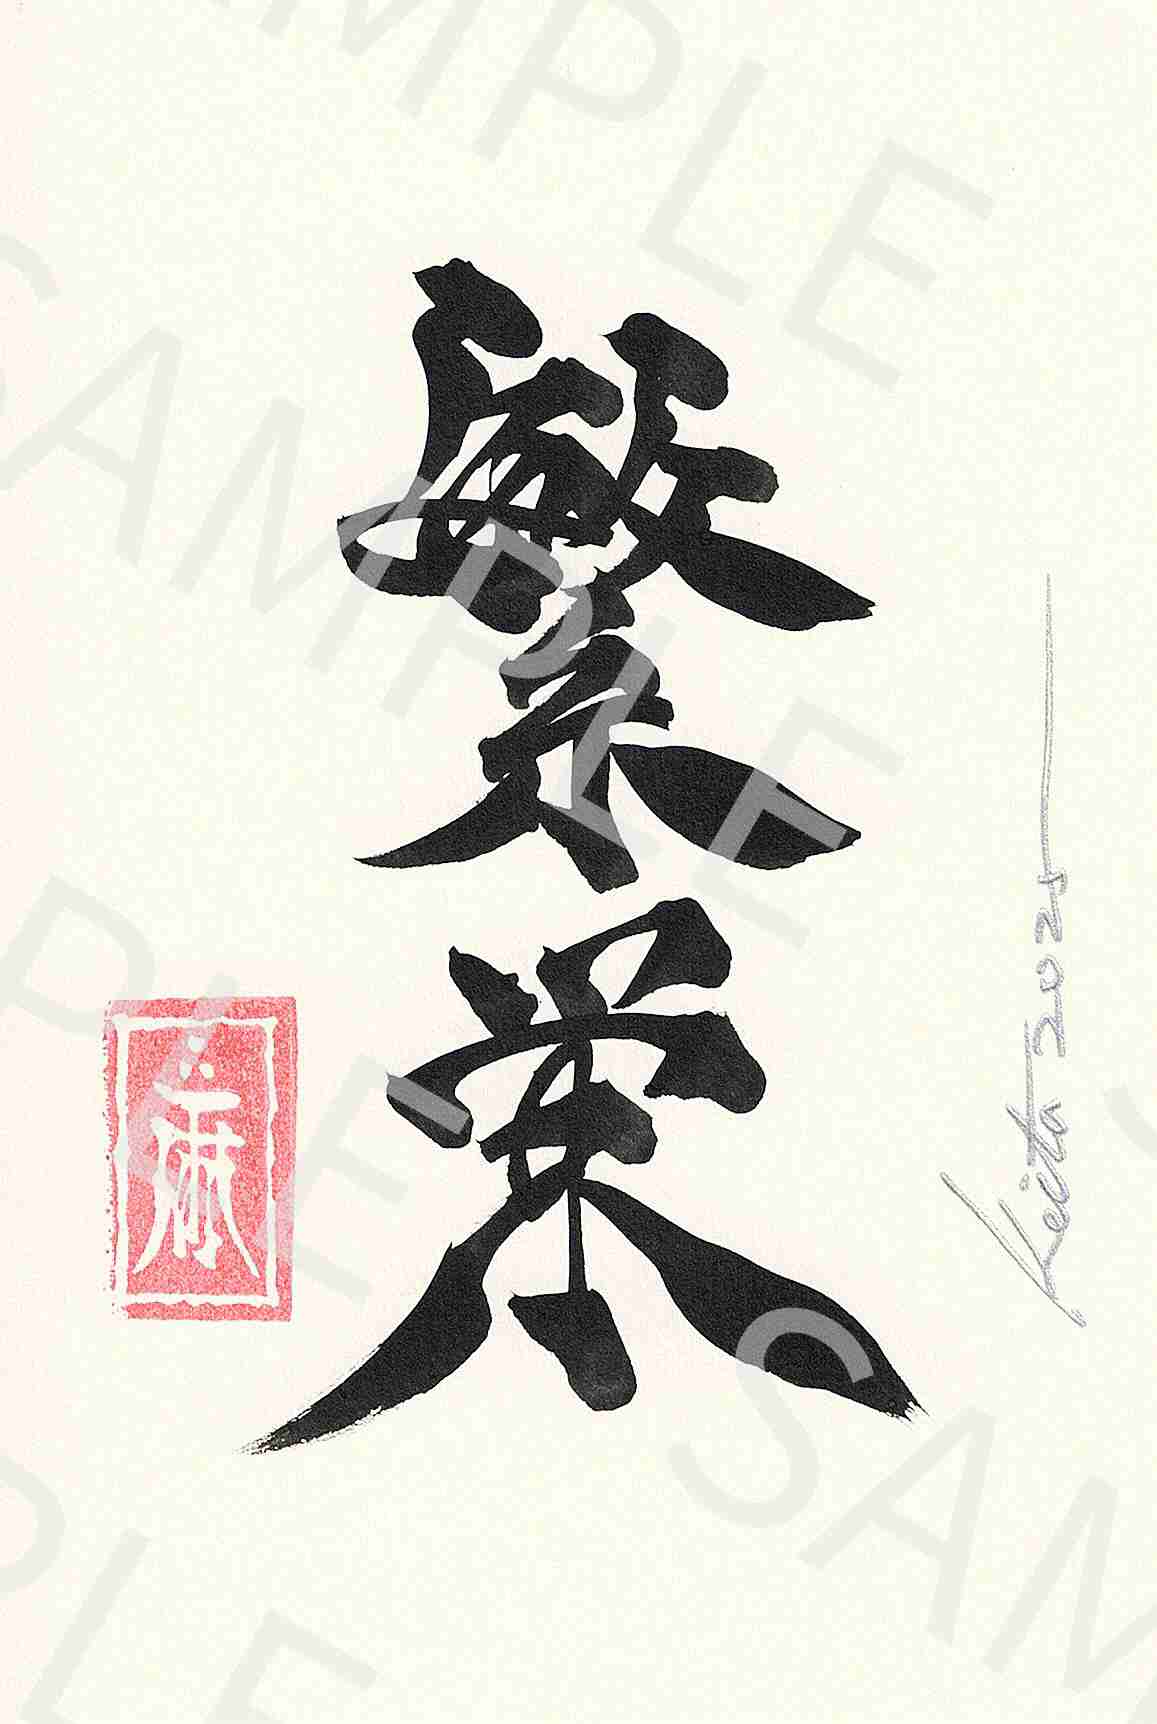 繁栄
Keita 2025
SAMPLE
SAMPLE
SAMPLE
SAMPLE
SAMPLE